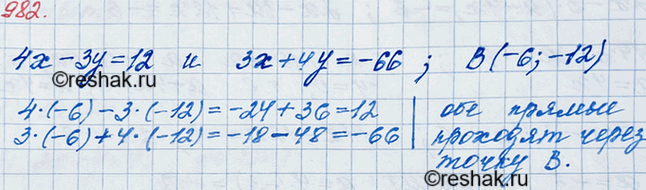 982.
4x-3y=12 и 3x+4y=-66; B(-6;-12)
©reshak.ru
4·(-6)-3·(-12)=-24+36=12 | обе прямые
3·(-6)+4·(-12)=-18-48=-66 | проходят через
точку B.
©reshak.ru